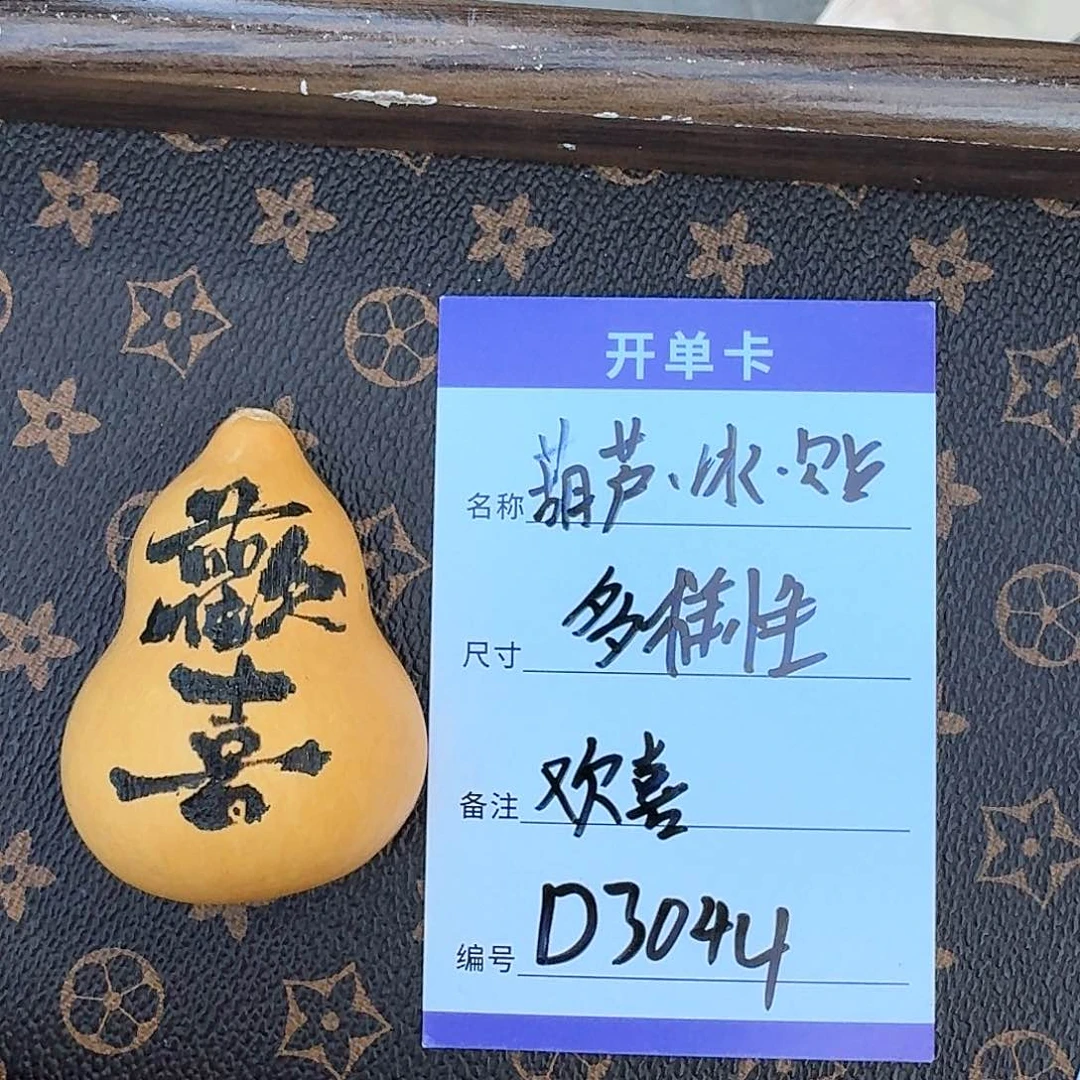 歡
喜
开单卡
名称 葫芦、冰·贴
尺寸 多样性
备注 欢喜
编号 D3044